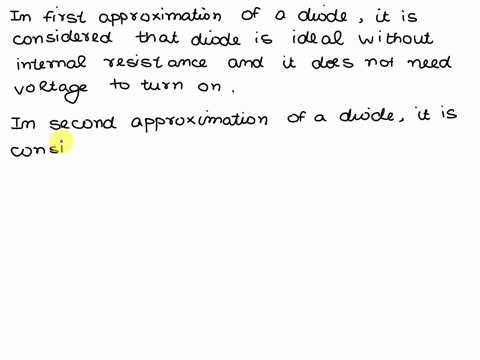 In first approximation of a diode, it is
considered that diode is ideal without
internal resistance and it does not need
voltage to turn on.
In second approximation of a diode, it is
consi